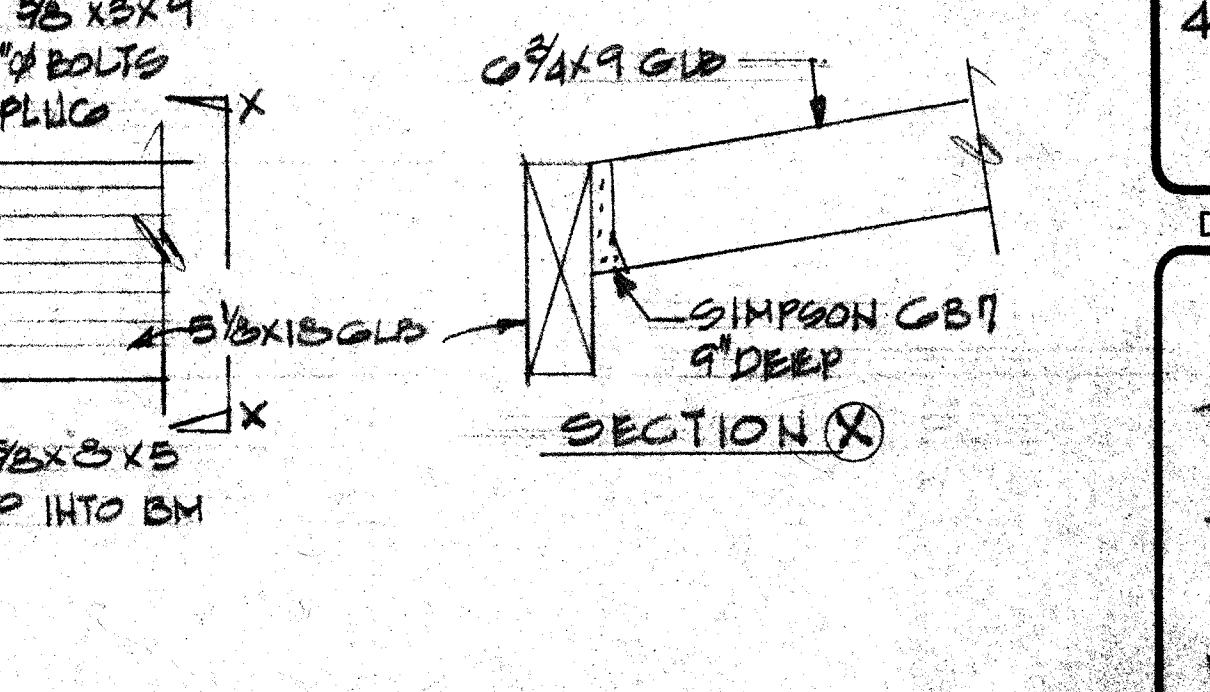 5/8 x3x9
"Ø BOLTS
PLUG
X
5 1/8x18 GLB
X
5/8x8x5
INTO BM
6 3/4x9 GLB
SIMPSON GB7
9" DEEP
SECTION X
4